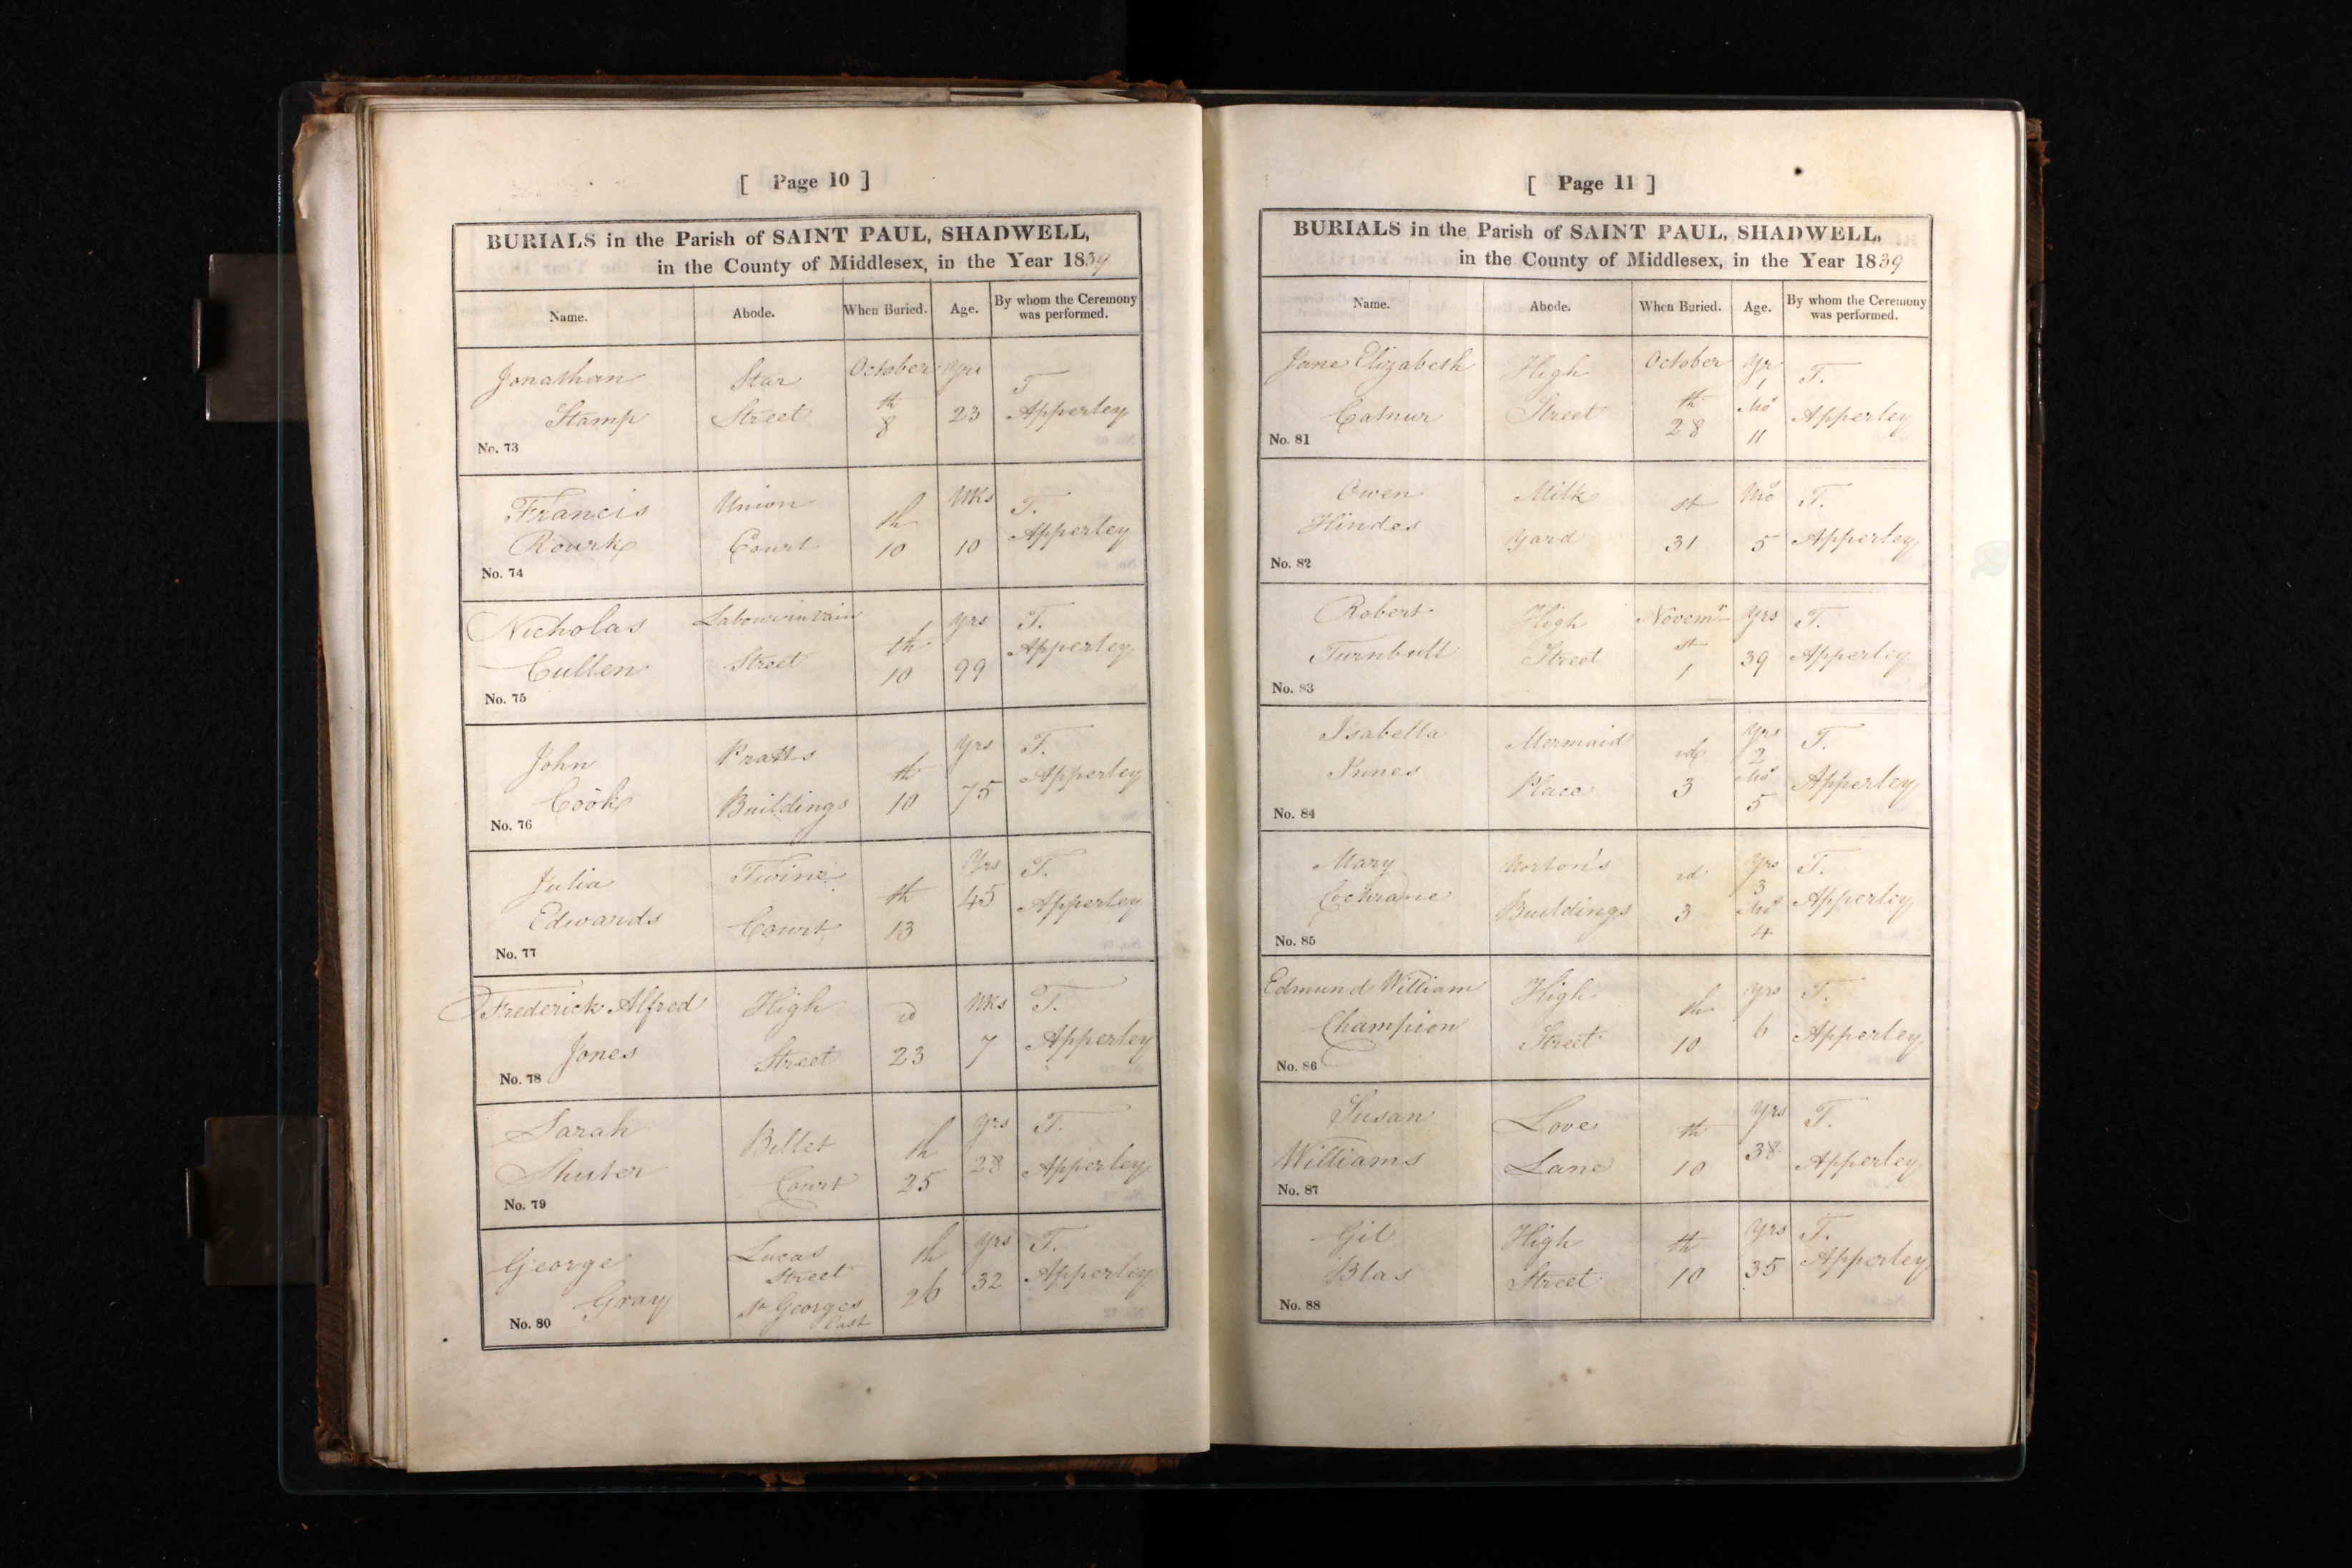 [ Page 10 ]
BURIALS in the Parish of SAINT PAUL, SHADWELL,
in the County of Middlesex, in the Year 1839
Name. Abode. When Buried. Age. By whom the Ceremony was performed.
Jonathan Star October Yrs T
Stamp Street 8th 23 Apperley
No. 73
Francis Union th Wks T.
Rourke Court 10 10 Apperley
No. 74
Nicholas Labourinvain th Yrs T.
Cullen Street 10 99 Apperley
No. 75
John Pratts th Yrs T.
Cook Buildings 10 75 Apperley
No. 76
Julia Twine th Yrs T.
Edwards Court 13 45 Apperley
No. 77
Frederick Alfred High d Wks T.
Jones Street 23 7 Apperley
No. 78
Sarah Billet th Yrs T.
Shuter Court 25 28 Apperley
No. 79
George Lucas Street th Yrs T.
Gray St Georges East 26 32 Apperley
No. 80
[ Page 11 ]
BURIALS in the Parish of SAINT PAUL, SHADWELL,
in the County of Middlesex, in the Year 1839
Name. Abode. When Buried. Age. By whom the Ceremony was performed.
Jane Elizabeth High October Yr 1 T.
Street th 28 Mos 11 Apperley
No. 81
Owen Milk st Mos T.
Hindes Yard 31 5 Apperley
No. 82
Robert High Novemr Yrs T.
Turnbull Street st 1 39 Apperley
No. 83
Isabella Mermaid rd Yrs 2 T.
Innes Place 3 Mos 5 Apperley
No. 84
Mary Norton's rd Yrs 3 T.
Cochrane Buildings 3 Mos 4 Apperley
No. 85
Edmund William High th Yrs T.
Champion Street 10 6 Apperley
No. 86
Susan Love th Yrs T.
Williams Lane 10 38 Apperley
No. 87
Gil High th Yrs T.
Blas Street 10 35 Apperley
No. 88